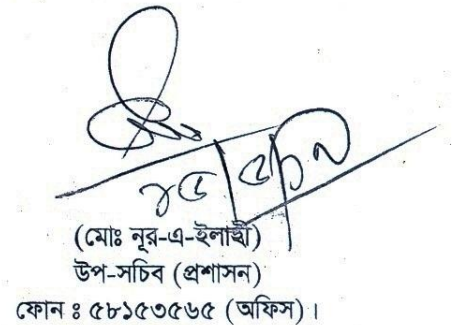 (মোঃ নূর-এ-ইলাহী)
উপ-সচিব (প্রশাসন)
ফোন ঃ ৫৮১৫৩৫৬৫ (অফিস)।